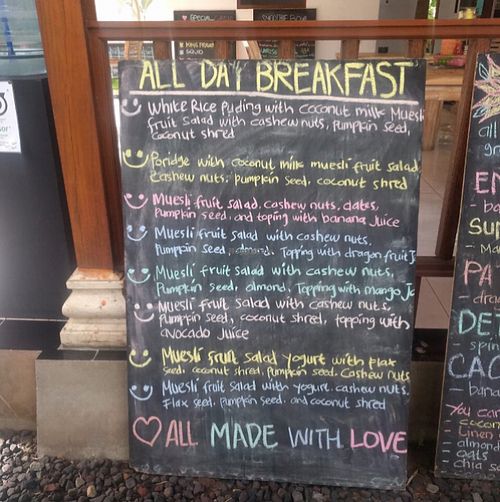 SPECIAL
SMOOTHIE BOWL
KING PRAWN
SQUID
ALL DAY BREAKFAST
White Rice Puding with coconut milk Muesli
fruit Salad with cashew nuts, pumpkin Seed,
Coconut shred
Poridge with coconut milk muesli fruit Salad
Cashew nuts, pumpkin Seed, coconut shred
Muesli fruit salad cashew nuts, dates,
Pumpkin seed, and toping with banana Juice
Muesli fruit Salad with cashew nuts,
Pumpkin seed, almond, Topping with dragon fruit J
Muesli fruit salad with cashew nuts,
Pumpkin seed, almond, Topping with mango Jc
Muesli fruit Salad with cashew nuts,
Pumpkin seed, coconut shred, topping with
avocado Juice
Muesli fruit salad yogurt with flax
Seed, coconut shred, pumpkin seed, Cashew nuts
Muesli fruit Salad with yogurt, cashew nuts,
Flax seed, pumpkin seed, and coconut shred
ALL MADE WITH LOVE
all
EN
- ba
SU
- Ma
PA
- dra
DET
- spin
CAC
- bana
You can
- coconu
- almond
- oats
- chia se